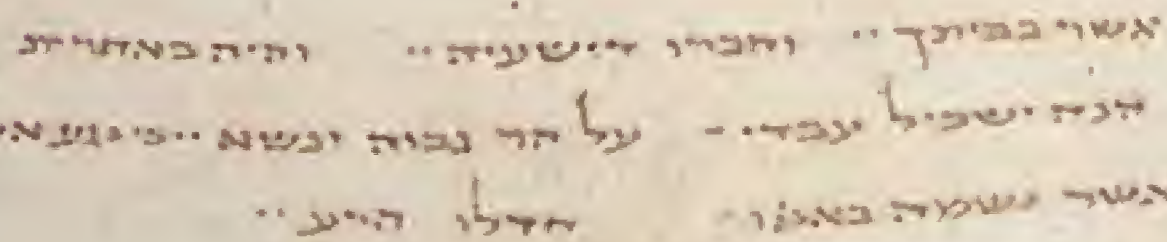 אשר בביתך ·· וחברו דישעיה ·· והיה באחרית
הנה ישכיל עבדי ·· על הר גבוה ונשא ··
אשר נשמה באפו ·· חדלו הרע ··